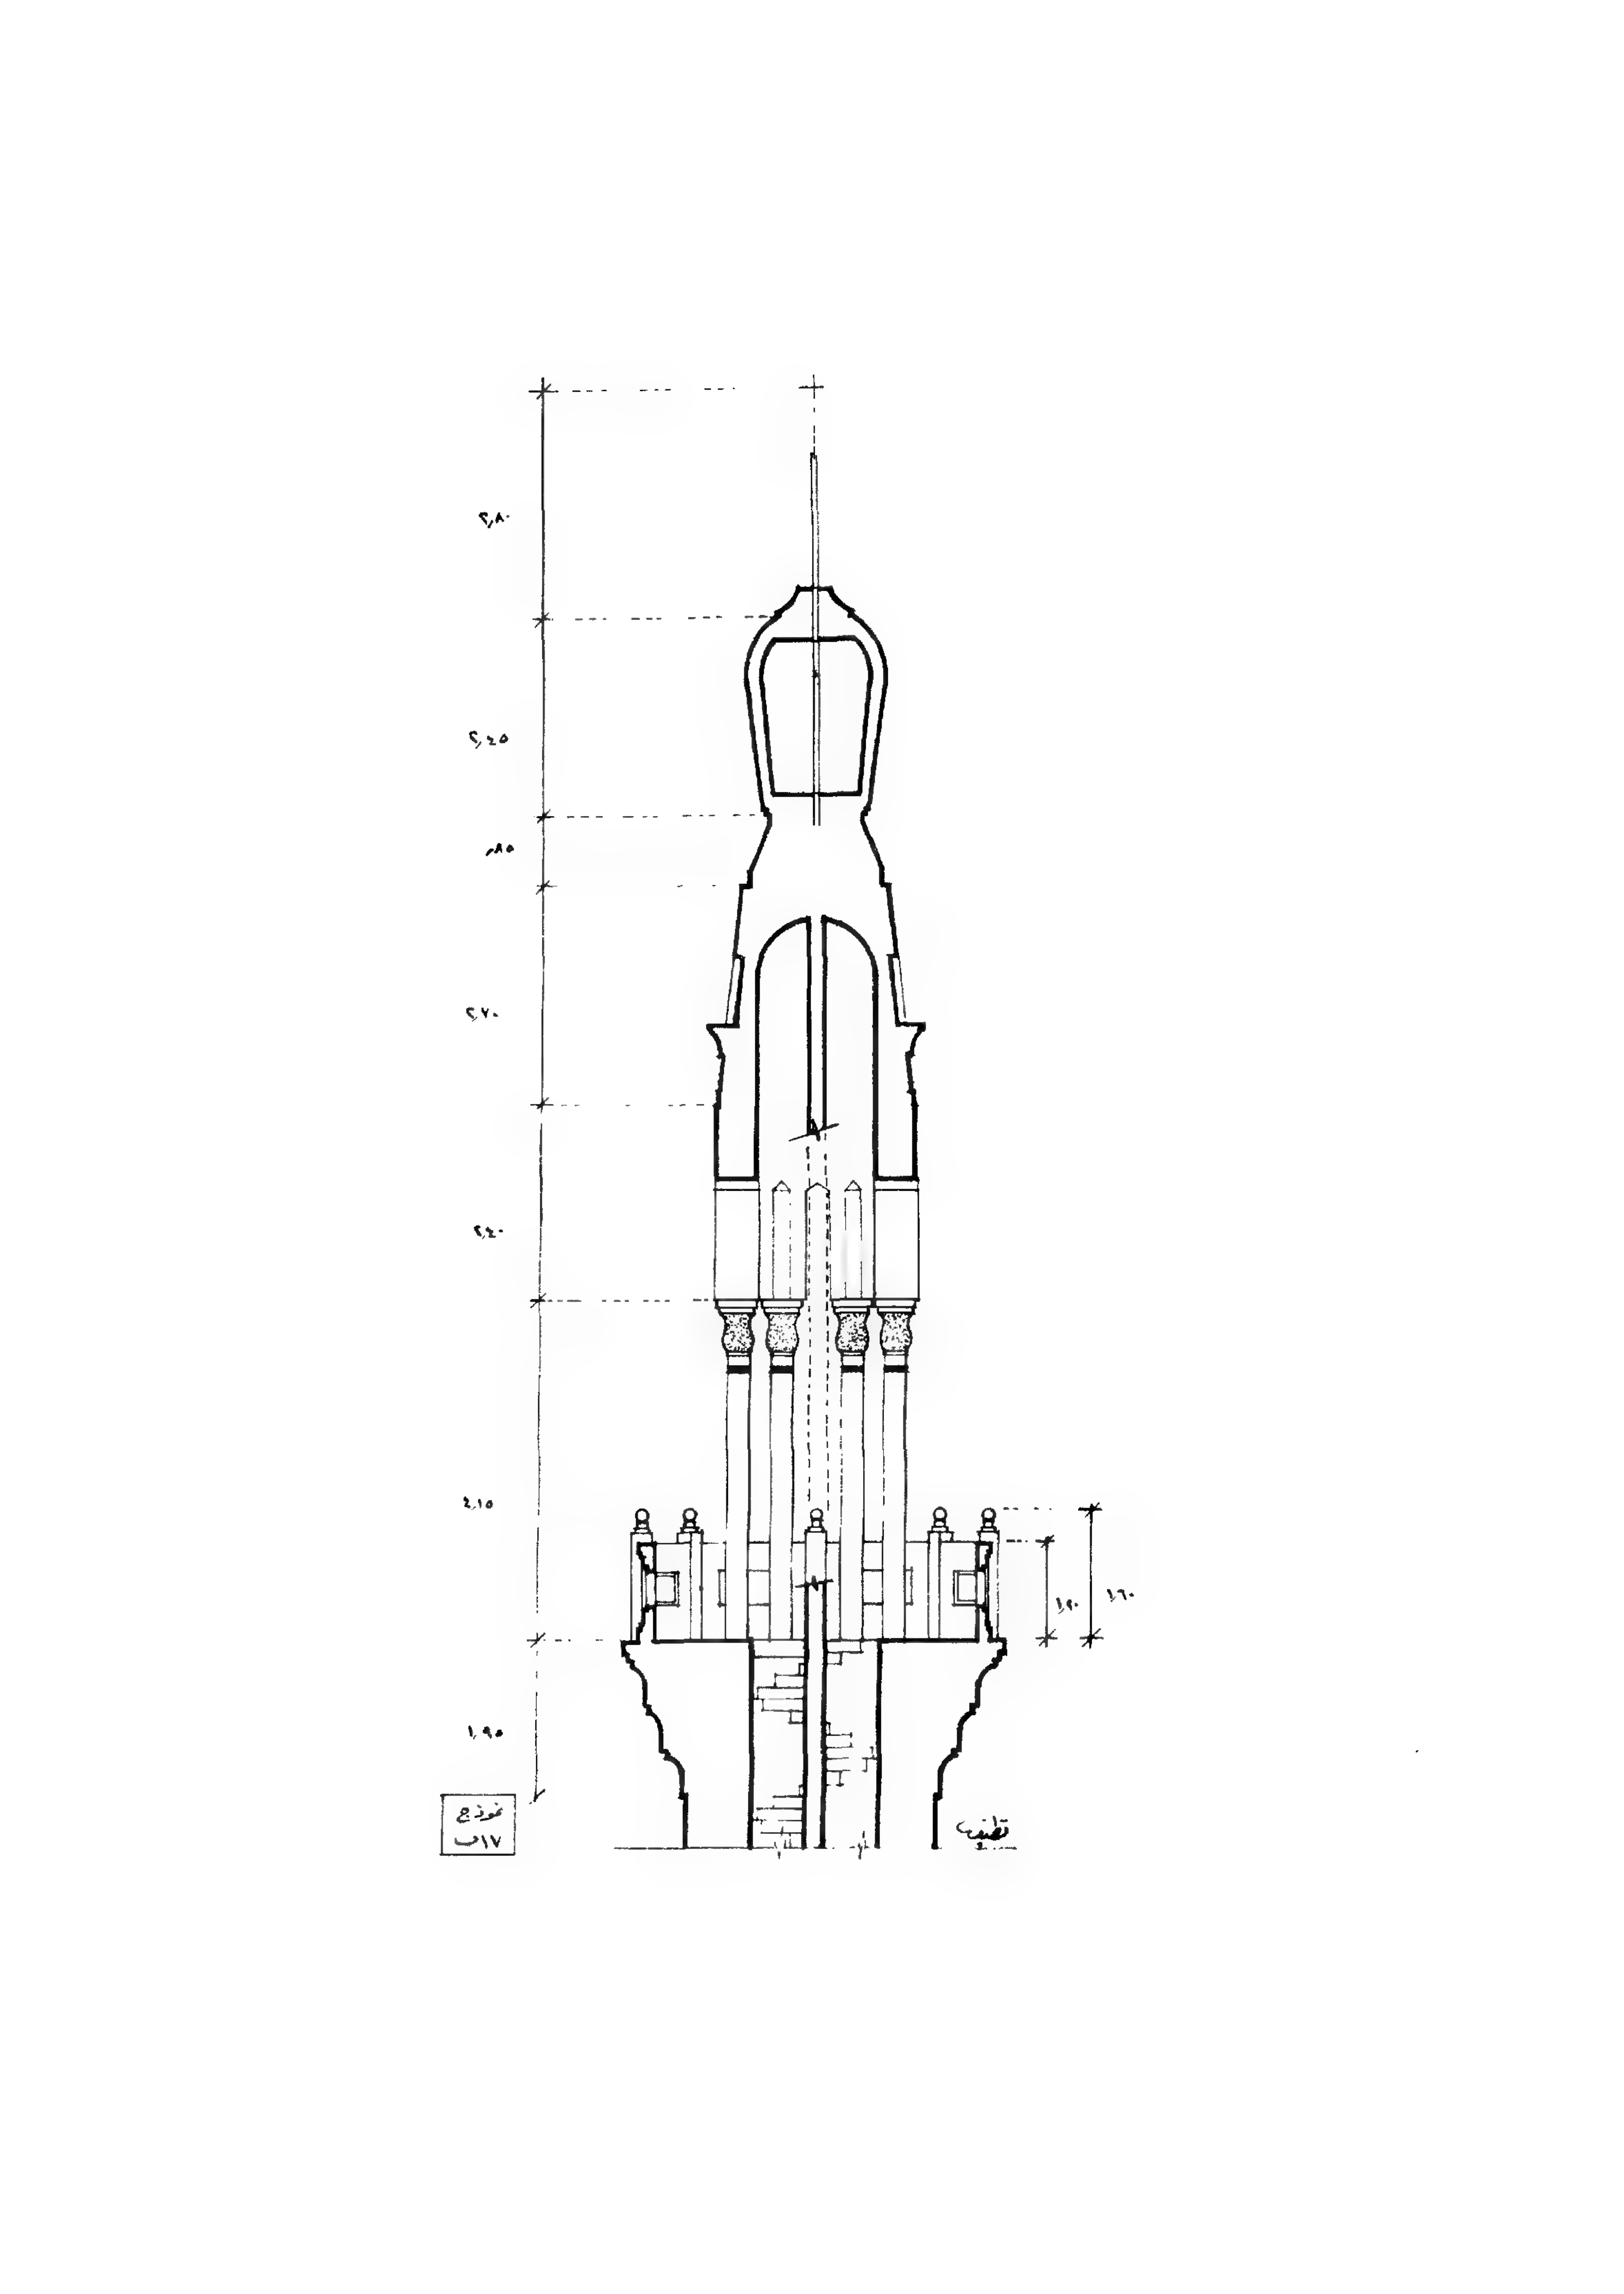 ٢,٨٠
٢,٤٥
,٨٥
٢,٧٠
٢,٤٠
٤,١٥
١,٢٠
١,٦٠
١,٩٥
نموذج
١٧ب